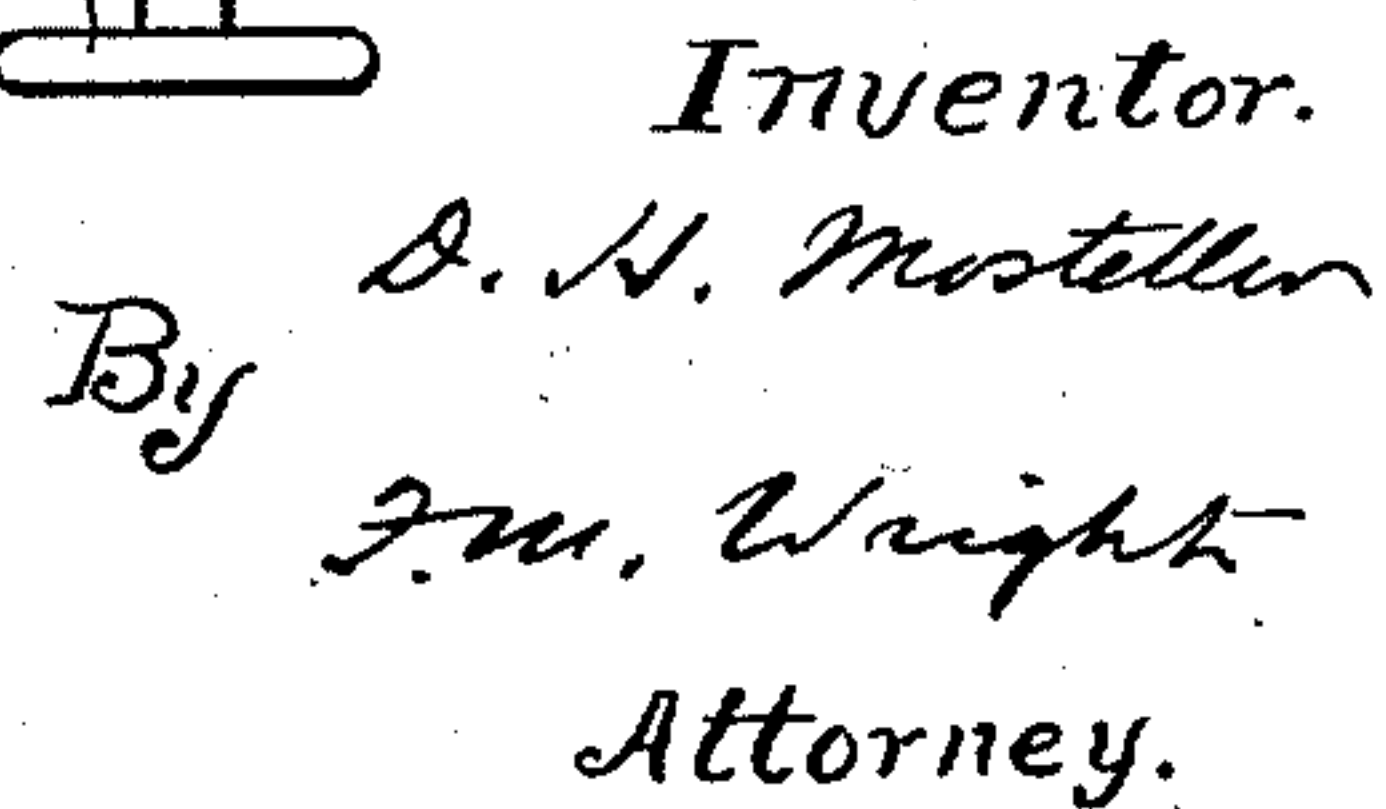 Inventor.
D. H. Mosteller
By
F. M. Wright
Attorney.